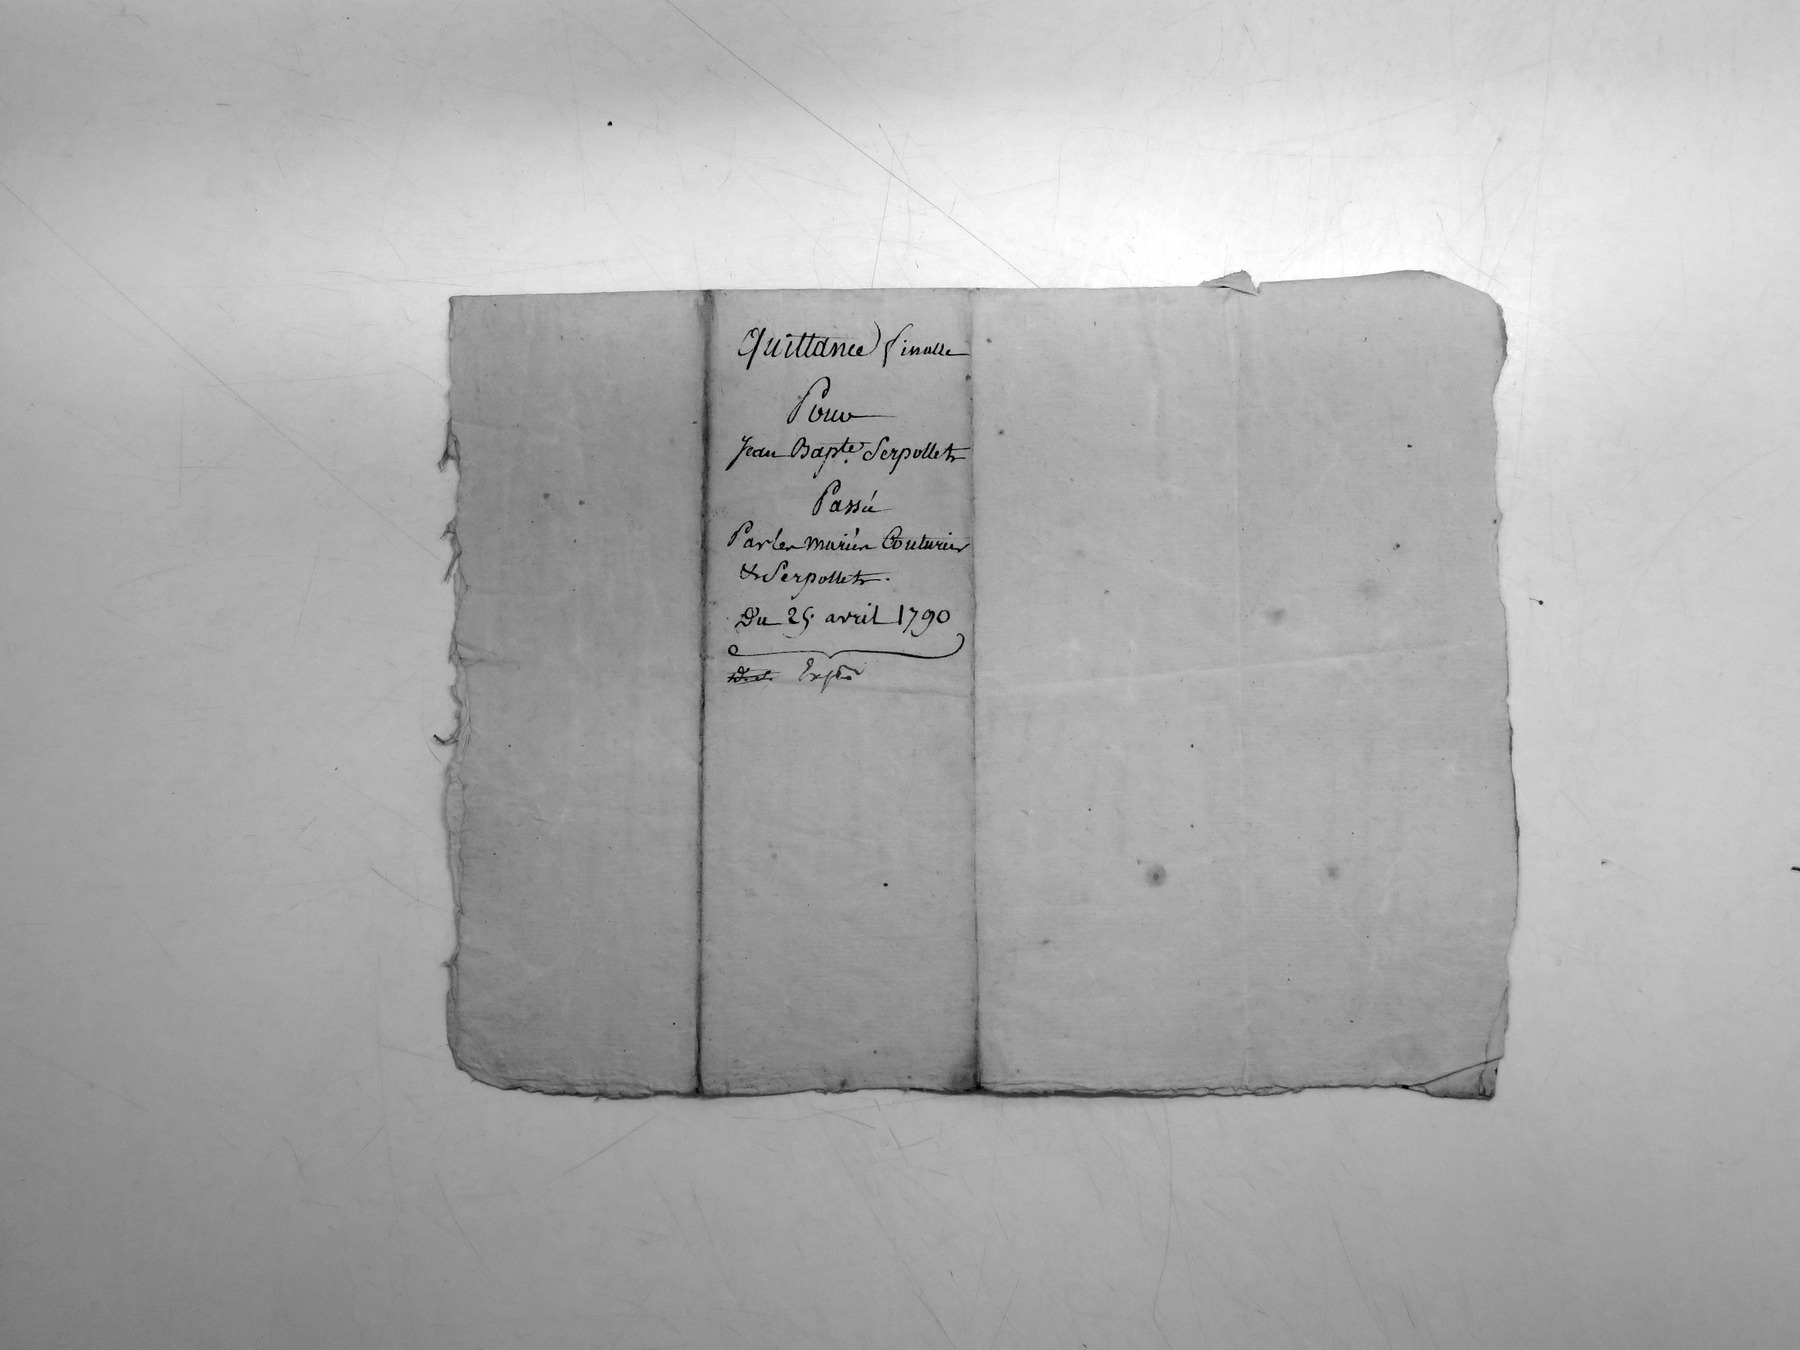 Quittance finalle
Pour
Jean Bapte. Serpollet
Passée
Par les mariés Couturier
& Serpollet.
Du 25 avril 1790
Expon